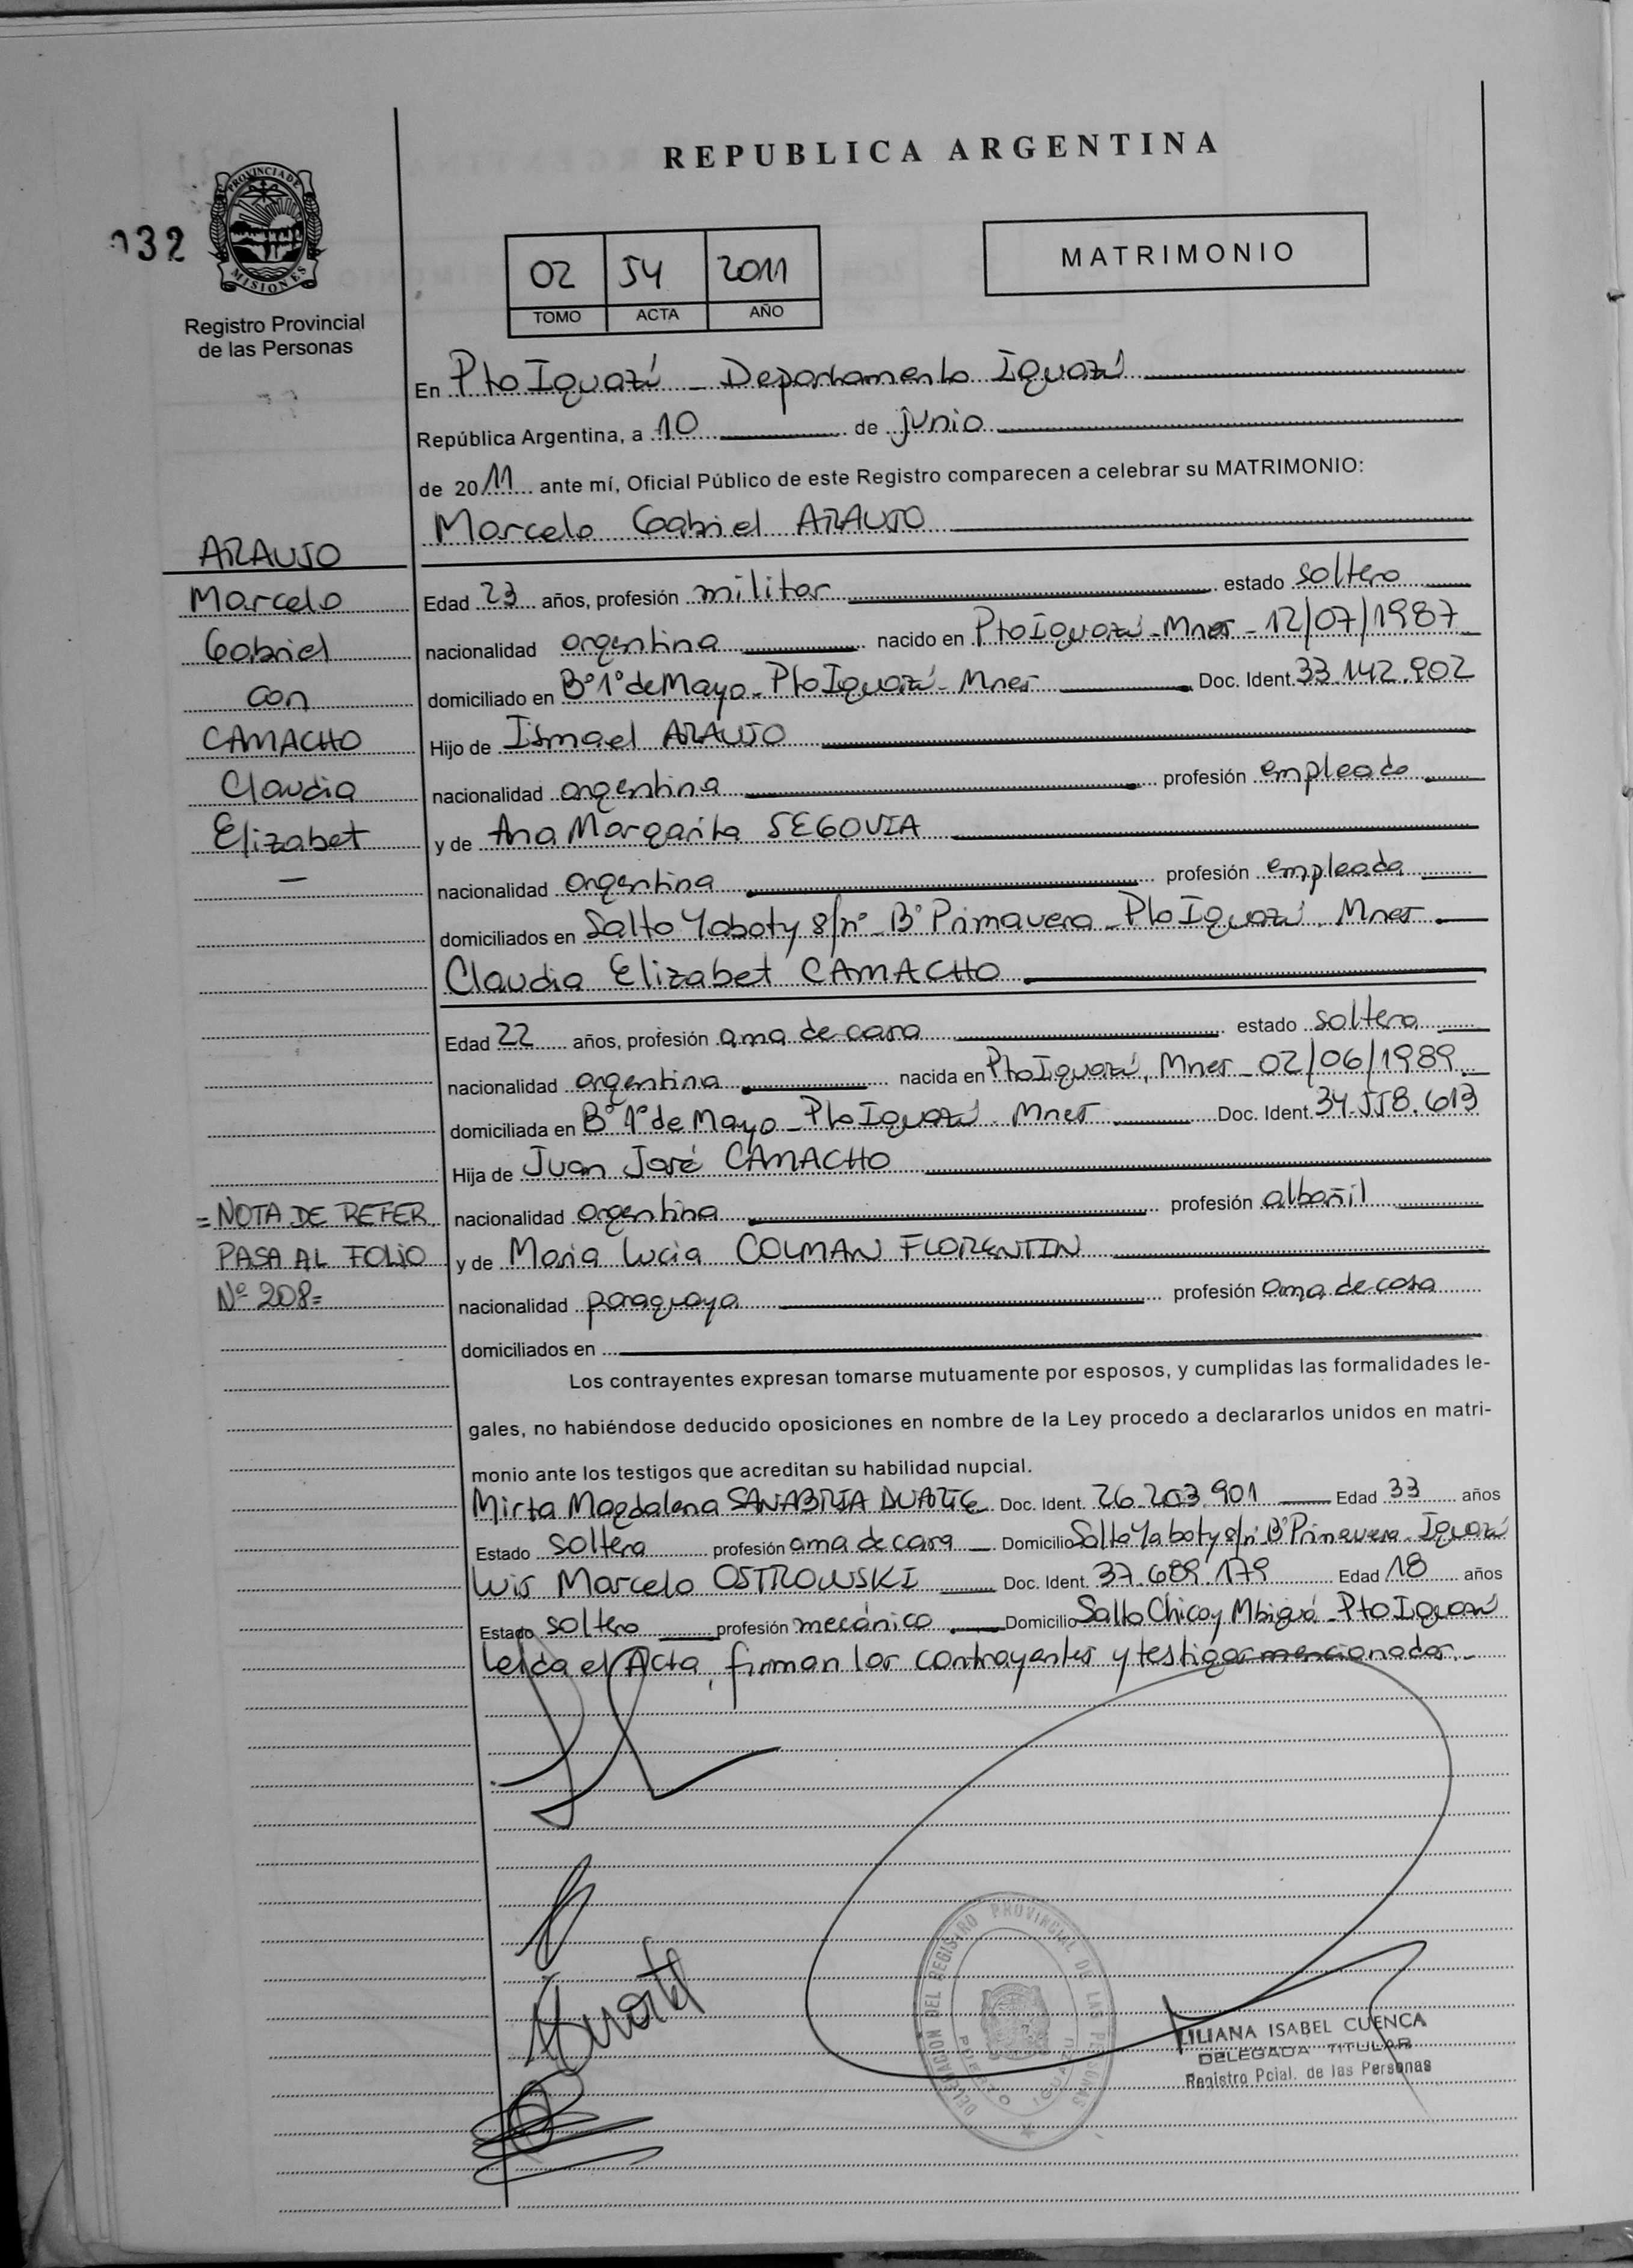 REPUBLICA ARGENTINA
032
PROVINCIA DE
MISIONES
Registro Provincial
de las Personas
02 54 2011
TOMO ACTA AÑO
MATRIMONIO
En Pto Iguazú - Departamento Iguazú
República Argentina, a 10 de junio
de 2011 ante mí, Oficial Público de este Registro comparecen a celebrar su MATRIMONIO:
Marcelo Gabriel ARAUJO
ARAUJO
Marcelo
Gabriel
con
CAMACHO
Claudia
Elizabet
Edad 23 años, profesión militar estado soltero
nacionalidad argentina nacido en Pto Iguazú - Mnes - 12/07/1987
domiciliado en B° 1° de Mayo - Pto Iguazú - Mnes Doc. Ident. 33.142.902
Hijo de Ismael ARAUJO
nacionalidad argentina profesión empleado
y de Ana Margarita SEGOVIA
nacionalidad argentina profesión empleada
domiciliados en Salto Yaboty s/n° - B° Primavera - Pto Iguazú. Mnes
Claudia Elizabet CAMACHO
Edad 22 años, profesión ama de casa estado soltera
nacionalidad argentina nacida en Pto Iguazú, Mnes - 02/06/1989
domiciliada en B° 1° de Mayo - Pto Iguazú. Mnes Doc. Ident. 34.558.613
Hija de Juan José CAMACHO
nacionalidad argentina profesión albañil
y de Maria Lucia COLMAN FLORENTIN
nacionalidad paraguaya profesión ama de casa
domiciliados en
= NOTA DE REFER
PASA AL FOLIO
Nº 208=
Los contrayentes expresan tomarse mutuamente por esposos, y cumplidas las formalidades le-
gales, no habiéndose deducido oposiciones en nombre de la Ley procedo a declararlos unidos en matri-
monio ante los testigos que acreditan su habilidad nupcial.
Mirta Magdalena SANABRIA DUARTE Doc. Ident. 26.203.901 Edad 33 años
Estado soltera profesión ama de casa Domicilio Salto Yaboty s/n° B° Primavera - Iguazú
Luis Marcelo OSTROWSKI Doc. Ident. 37.689.179 Edad 18 años
Estado soltero profesión mecánico Domicilio Salto Chico y Mbiguá - Pto Iguazú
Leída el Acta, firman los contrayentes y testigos mencionados.-
DELEGACION DEL REGISTRO PROVINCIAL DE LAS PERSONAS
PUERTO IGUAZU
LILIANA ISABEL CUENCA
DELEGADA TITULAR
Registro Pcial. de las Personas